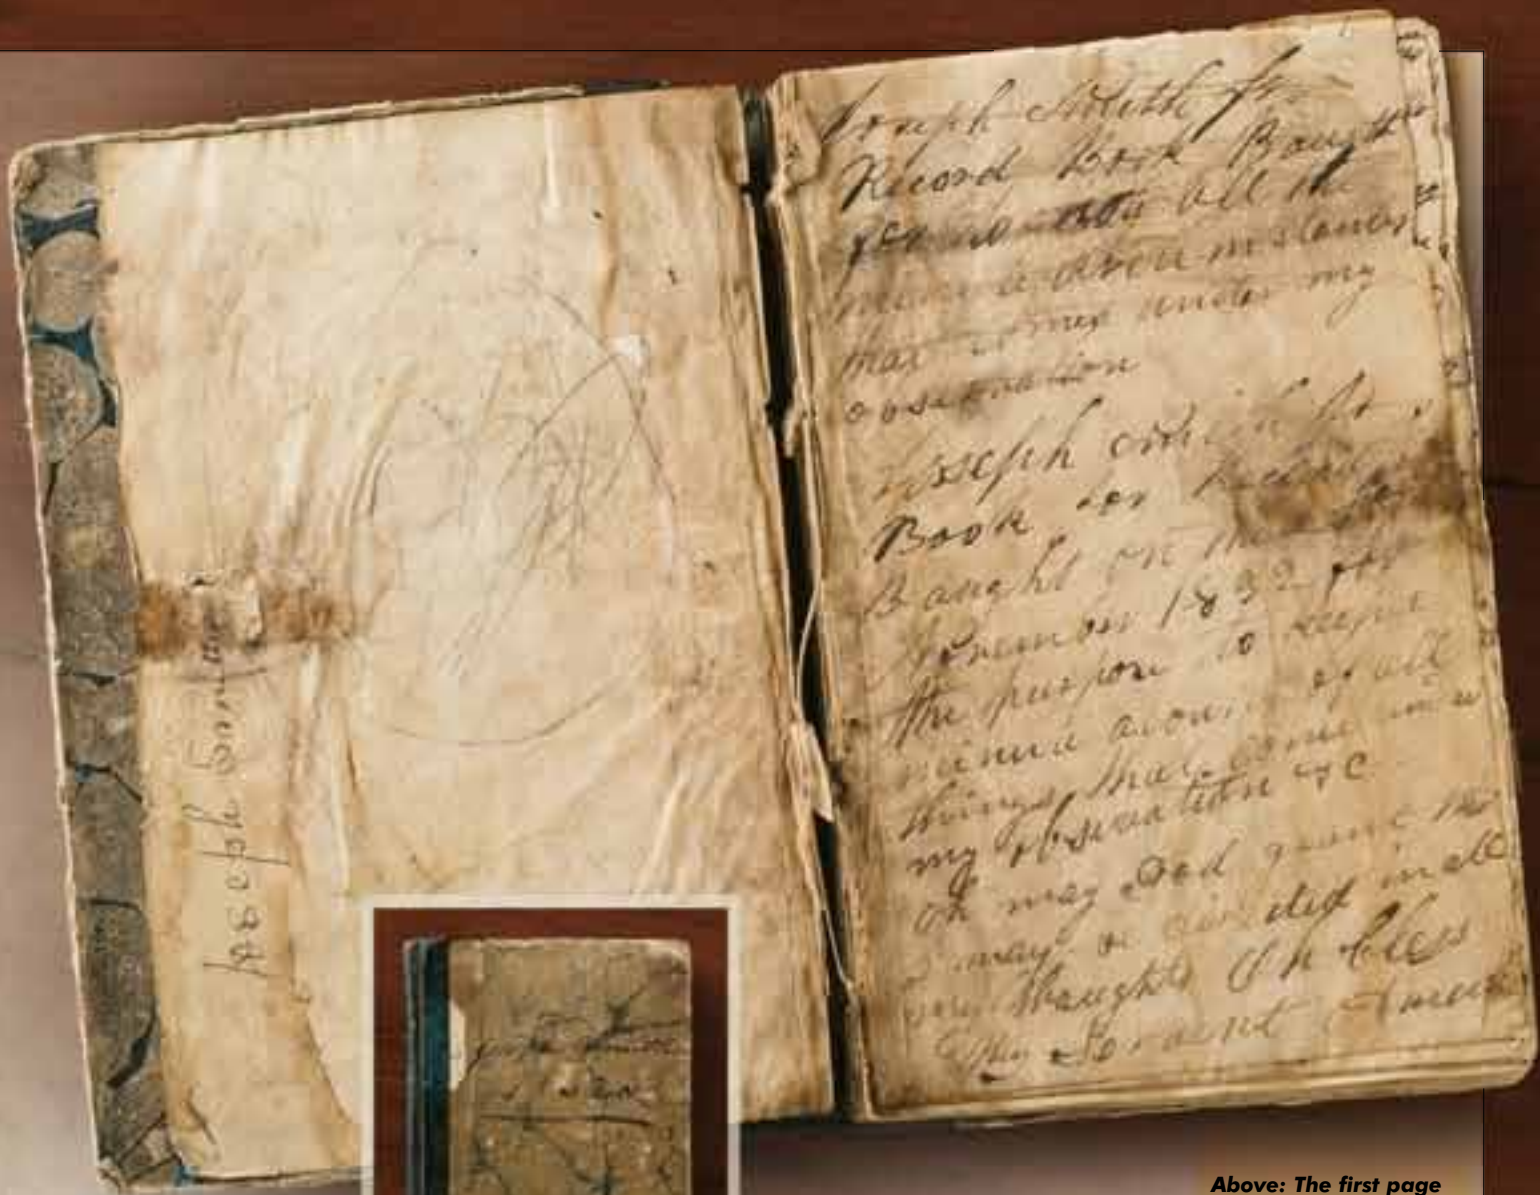 Joseph
Joseph Smith Jr
Record Book Baught
for to note all the
minute circumstances
that comes under my
observation
Joseph Smith Jr
Book for Record
Baught on the
November 1832 for
the purpose to keep a
minute acount of all
things that come under
my observation &c
Oh may God grant that
I may be directed in all
my thaughts Oh bless
thy Servent Amen
Above: The first page